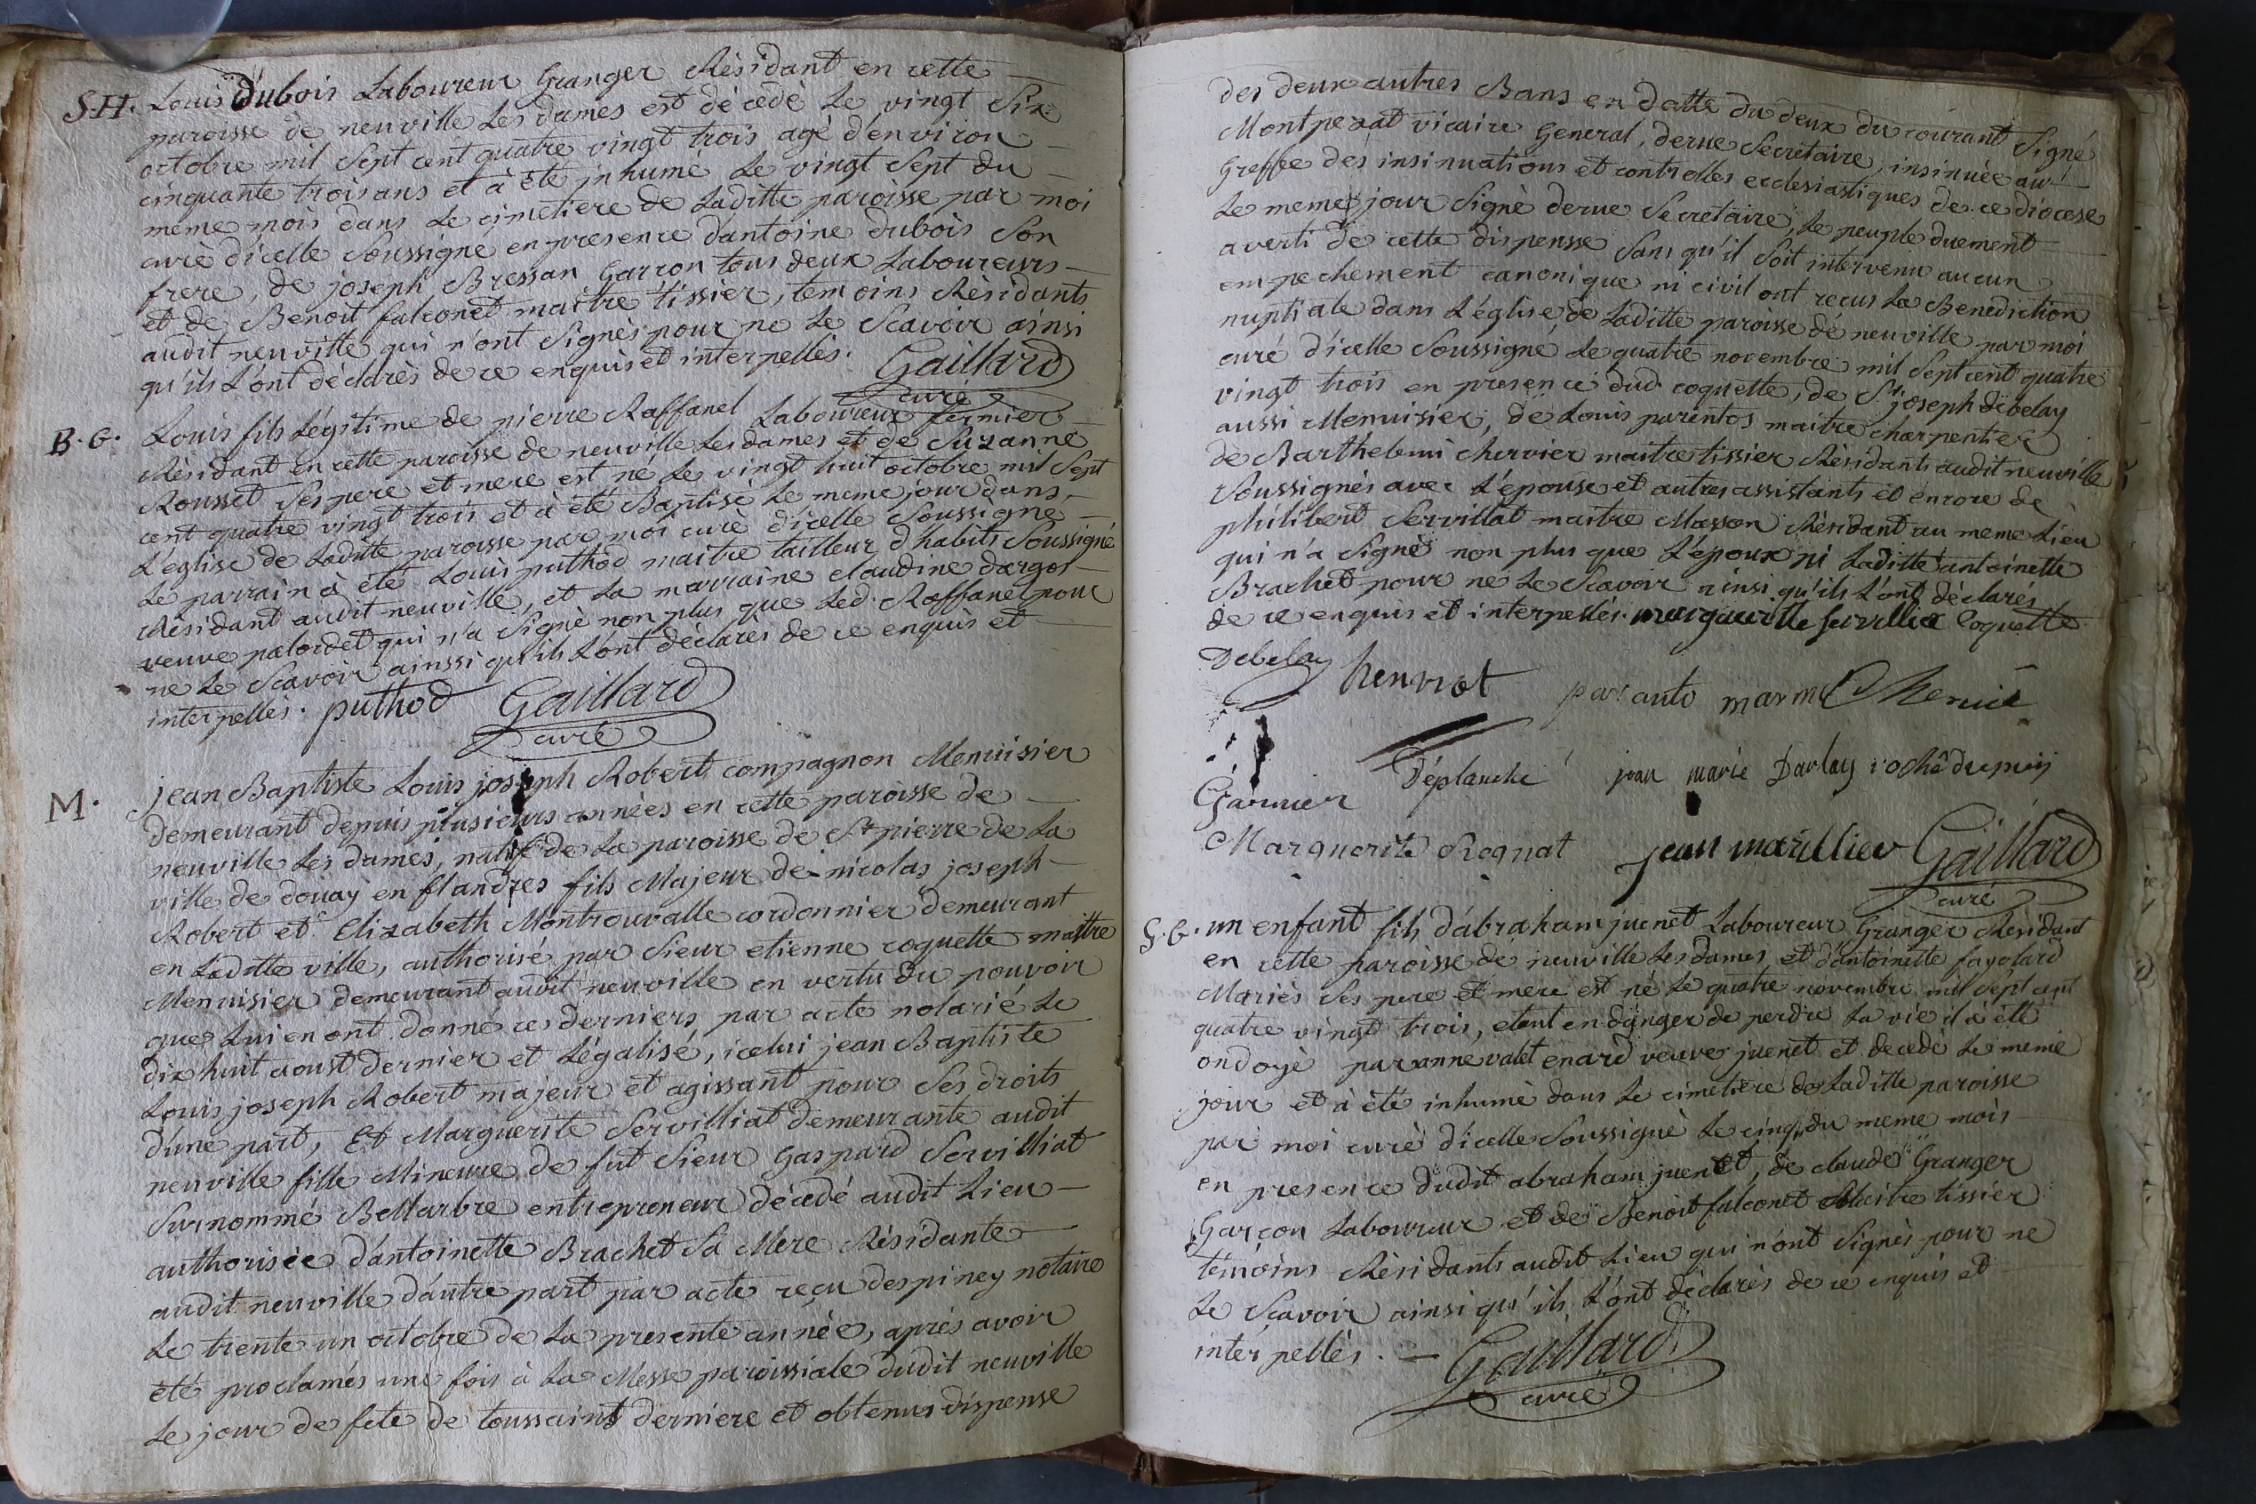 S.H. Louis dubois Laboureur Granger Résidant en cette
paroisse de neuville Les dames est décedé Le vingt Six
octobre mil Sept cent quatre vingt trois agé d'environ
cinquante trois ans et à été inhumé Le vingt Sept du
même mois dans Le cimetiere de Laditte paroisse par moi
curé dicelle Soussigné en presence dantoine dubois Son
frere, de joseph Bressan Garçon tous deux Laboureurs
et de Benoit falconet maitre tissier, temoins Résidants
audit neuville qui n'ont Signés pour ne Le Scavoir ainsi
qu'ils L'ont déclarés de ce enquis et interpellés. Gaillard
curé
B.G. Louis fils Légitime de pierre Raffanel Laboureur fermier
Résidant en cette paroisse de neuville Les dames et de Suzanne
Rousset Ses pere et mere est né Le vingt huit octobre mil Sept
cent quatre vingt trois et à été Baptisé Le meme jour dans
L'église de Laditte paroisse par moi curé d'icelle Soussigné
Le parrain à été Louis puthod maitre tailleur d'habits Soussigné
Résidant audit neuville, et La marraine claudine dargos
veuve palordet qui n'a Signé non plus que Led. Raffanel pour
ne Le Scavoir ainssi qu'ils L'ont déclarés de ce enquis et
interpellés. puthod Gaillard
curé
M. jean Baptiste Louis joseph Robert compagnon Menuisier
demeurant depuis plusieurs années en cette paroisse de
neuville Les dames, natif de La paroisse de St pierre de La
ville de douay en flandres fils Majeur de nicolas joseph
Robert et Elizabeth Montrouvalle cordonnier demeurant
en Laditte ville, authorisé par Sieur etienne coquette maitre
Menuisier demeurant audit neuville en vertu du pouvoir
que Lui en ont donné ces derniers par acte notarié Le
dix huit aoust dernier et Légalisé, icelui jean Baptiste
Louis joseph Robert majeur et agissant pour Ses droits
d'une part, Et Marguerite Servilliat demeurante audit
neuville fille Mineure de fut Sieur Gaspard Servilliat
Surnommé BelMarbre entrepreneur décedé audit Lieu
authorisée d'antoinette Brachet Sa Mere Résidante
audit neuville d'autre part par acte reçu despiney notaire
Le trente un octobre de La presente année, après avoir
été proclamés une fois à La Messe paroissiale dudit neuville
Le jour de fete de toussaint derniere et obtenus dispense
des deux autres Bans en datte du deux du courant Signé
Montpezat vicaire General, derue Secretaire, insinuée au
Greffe des insinuations et controlles ecclesiastiques de ce diocese
Le meme jour Signé derue Secretaire, Le peuple duement
averti de cette dispensse Sans qu'il Soit intervenu aucun
empechement canonique ni civil ont recus La Benediction
nuptiale dans L'église de Laditte paroisse de neuville par moi
curé d'icelle Soussigné Le quatre novembre mil Sept cent quatre
vingt trois en presence dud. coquette, de Sr joseph debelay
aussi Menuisier, de Louis parentos maitre charpentier
de Barthelemi chervier maitre tissier Résidants audit neuville
Soussignés avec L'épouse et autres assistants et encore de
philibert Servillat maitre Masson Résidant au meme Lieu
qui n'a Signé non plus que L'époux ni Laditte antoinette
Brachet pour ne Le Scavoir ainsi qu'ils L'ont déclarés
de ce enquis et interpellés. Coquette
Debelay henriot
Garnier Déplanche jean marie Darlay
Marguerite Regnat Gaillard
curé
S.G. un enfant fils d'abraham juenet Laboureur Granger Résidant
en cette paroisse de neuville Les dames et d'antoinette fayolard
Mariés Ses pere et mere est né Le quatre novembre mil Sept cent
quatre vingt trois, etant en danger de perdre La vie il à été
ondoyé par anne valet enard veuve juenet et decedé Le meme
jour et à été inhumé dans Le cimetiere de Laditte paroisse
par moi curé dicelle Soussigné Le cinq du meme mois
en presence dudit abraham juenet, de claude Granger
Garçon Laboureur et de Benoit falconet Maitre tissier
témoins Résidants audit Lieu qui n'ont Signés pour ne
Le Scavoir ainsi qu'ils L'ont déclarés de ce enquis et
interpellés. Gaillard
curé